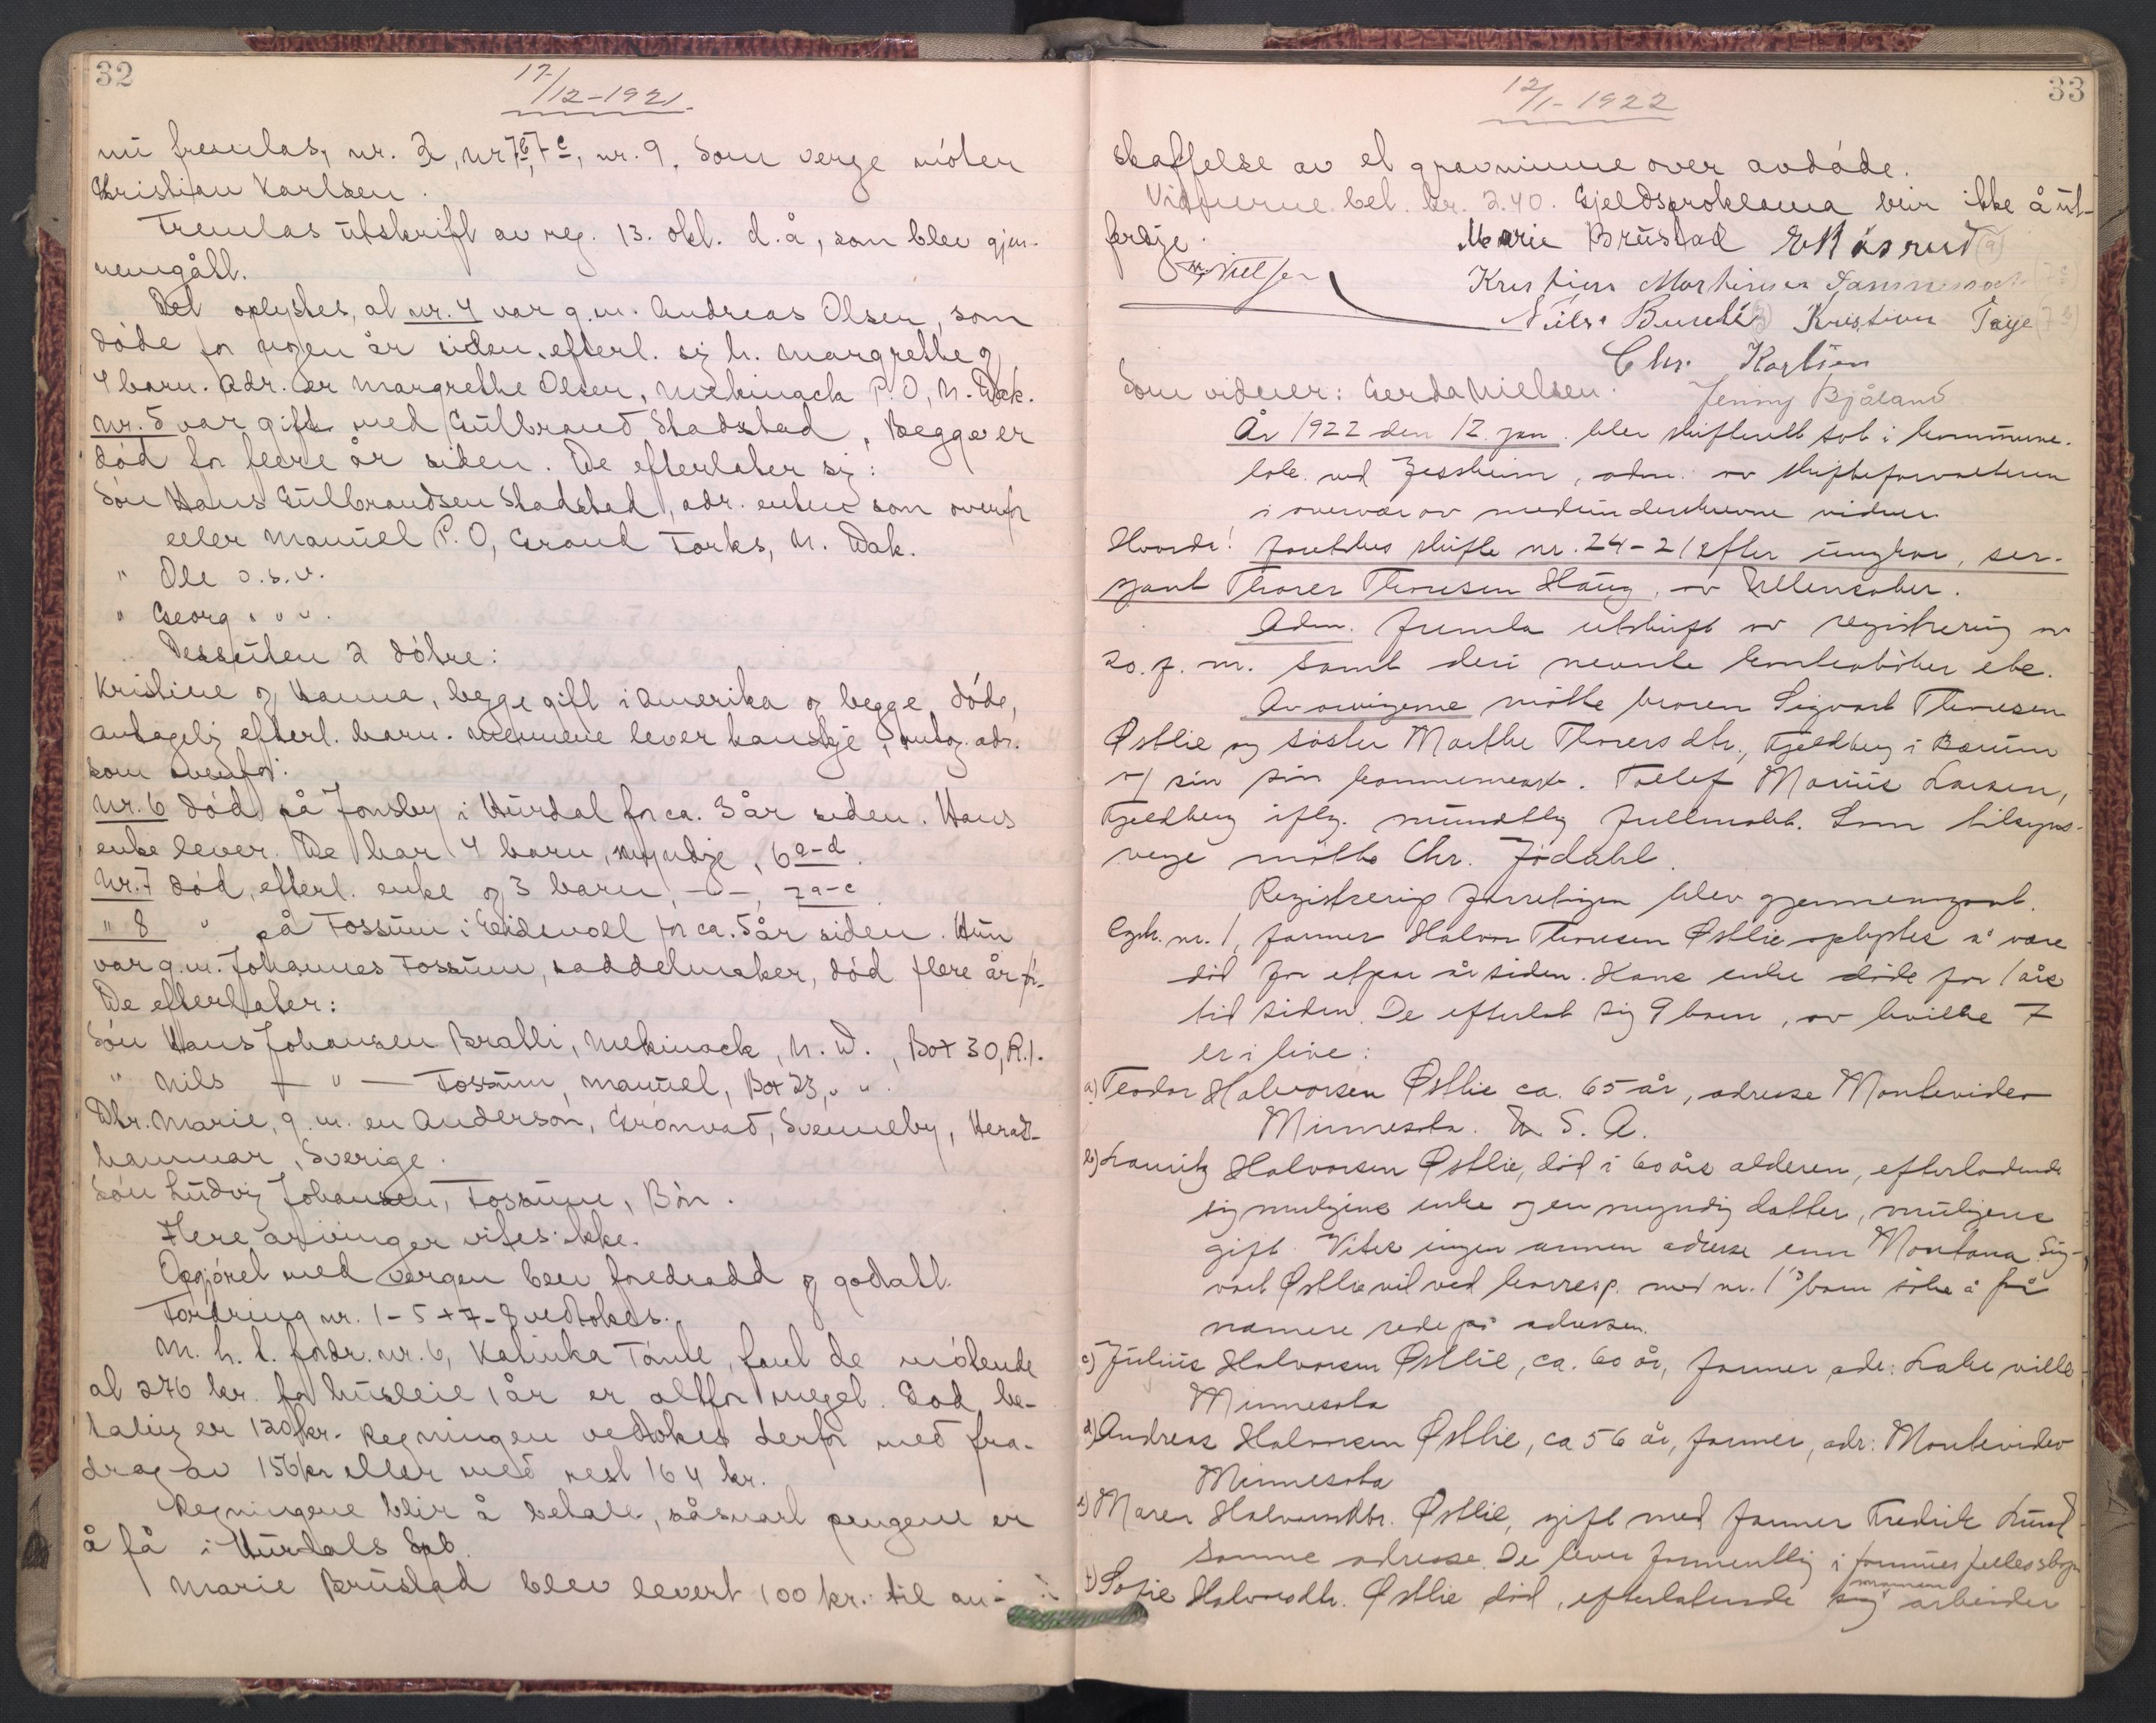 32
17/12-1921.
nu fremlas, nr. 2, nr 7b, 7c, nr. 9. Som verge möter
Kristian Karlsen.
Fremlas utskrift av reg. 13. okt. d.å, som blev gjen-
nemgått.
Det oplystes, at nr. 4 var g.m. Andreas Olsen, som
döde for nogen år siden, efterl. sig h. Margrethe og
4 barn. Adr. er Margrethe Olsen, Mekinock P.O, N. Dak.
Nr. 5 var gift med Gulbrand Stadstad. Begge er
död for flere år siden. De efterlater sig:
Sön Hans Gulbrandsen Stadstad, adr. enten som ovenfor
eller Manvel P.O, Grand Forks, N. Dak.
" Ole o.s.v.
" Georg " " "
Dessuten 2 dötre:
Kristine og Hanna, begge gift i Amerika og begge döde,
antagelig efterl. barn. Mennene lever kanskje, antag. adr.
som ovenfor.
Nr. 6 död på Jonsby i Hurdal for ca. 3 år siden. Hans
enke lever. De har 4 barn, myndige, 6 a-d.
Nr. 7 död, efterl. enke og 3 barn, -"-, 7 a-c
" 8 " på Fossum i Eidsvoll for ca. 5 år siden. Hun
var g.m. Johannes Fossum, saddelmaker, död flere år för.
De efterlater:
Sön Hans Johansen Bratli, Mekinock, N. D., Box 30, R.1.
" Nils - " - Fossum, Manvel, Box 23, " "
Dtr. Marie, g.m. en Anderson, Grönvad, Svenneby,
hammar, Sverige.
Sön Ludvig Johansen, Fossum, Bön.
Flere arvinger vites ikke.
Opgjöret med vergen blev foredradd og godtatt.
Fordring nr. 1-5 + 7-8 vedtokes.
M. h. t. fordr. nr. 6, Kalinka Tömte, fant de mötende
at 276 kr. for husleie 1 år er altfor meget. God be-
taling er 120 kr. Regningen vedtokes derfor med fra-
drag av 156 kr eller med rest 164 kr.
Regningene blir å betale, såsnart pengene er
å få i Hurdals Spb.
Marie Brustad blev levert 100 kr. til an-
33
12/1-1922
skaffelse av et gravminne over avdöde.
Vidnerne bet. kr. 2.40. Gjeldsproklama blir ikke å ut-
ferdige.
Marie Brustad
Nielsen
Kristians Marthinius
Niels Kristian
Chr. Karlsen
Som vidner: Gerda Nielsen. Jenny Bjåland
År 1922 den 12. jan. blev skifterett satt i kommune-
lok. ved Jessheim, adm. av skifteforvalteren
i overvær av medunderskrevne vidner.
Hvorda! foretokes skifte nr. 24-21 efter ungkar, ser-
sjant Thorer Thoresen Haug, av Ullensaker.
Adm. fremla utskrift av registrering av
20. f. m. samt deri nevnte kontrabøker etc.
Av arvingerne mötte broren Sigvart Thoresen
Østlie og söster Marthe Thorersdtr., Kjeldberg i Bærum
v/ sin sön Tollef Marius Larsen,
Kjeldberg iflg. mundtlig fullmakt. Som tilsyns-
verge mötte Chr. Jödahl.
Registrering forretningen blev gjennemgaat.
nr. 1, farmer Halvor Thoresen Østlie oplystes å være
död for etpar år siden. Hans enke döde for 1 års
tid siden. De efterlot sig 9 barn, av hvilke 7
er i live:
a) Teodor Halvorsen Østlie ca. 65 år, adresse Montevideo
Minnesota. U. S. A.
b) Lauritz Halvorsen Østlie, död i 60 års alderen, efterlatende
sig muligens enke og en myndig datter, muligens
gift. Vites ingen annen adresse enn Montana. Sig-
vart Østlie vil ved korresp. med nr. 1's barn söke å få
nærmere rede på adressen.
c) Julius Halvorsen Østlie, ca. 60 år, farmer, adr: Lake ville
Minnesota
d) Andreas Halvorsen Østlie, ca 56 år, farmer, adr: Montevideo
Minnesota
e) Maren Halvorsdtr. Østlie, gift med farmer Fredrik Lund
samme adresse. De lever formentlig i formues fellesskap
f) Sofie Halvorsdtr. Østlie död, efterlatende sig mannen arbeider